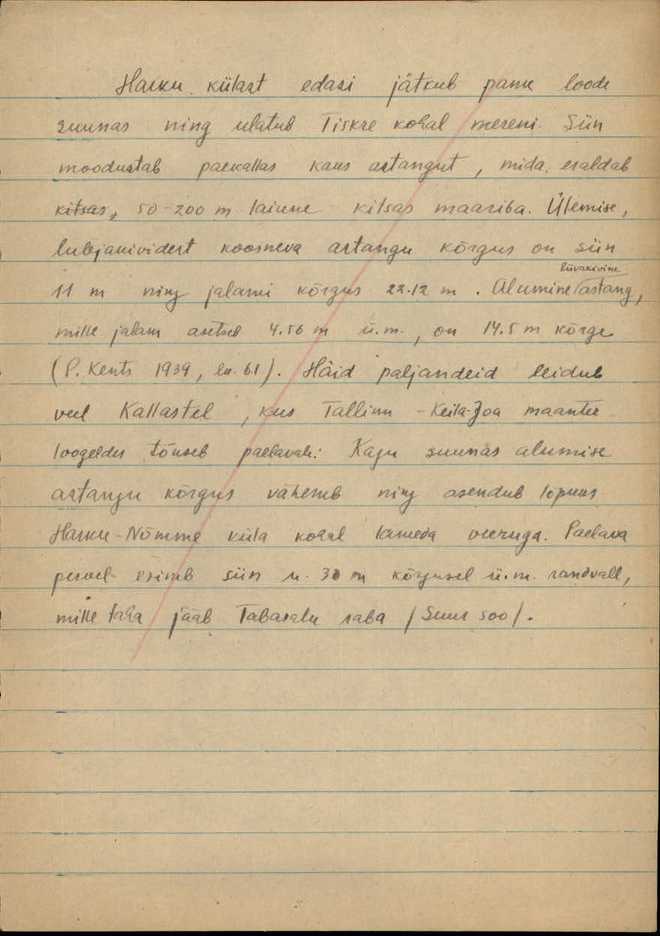 Harku külast edasi jätkub pank loode
suunas ning ulatub Tiskre kohal mereni. Siin
moodustab paekallas kaks astangut, mida eraldab
kitsas, 50-200 m laiune kitsas maariba. Ülemise,
lubjakividest koosneva astangu kõrgus on siin
liivakivine
11 m ning jalami kõrgus 22.12 m. Alumine astang,
mille jalam asetseb 4.56 m ü.m., on 14.5 m kõrge
(P. Kents 1939, lk. 61). Häid paljandeid leidub
veel Kallastel, kus Tallinn - Keila-Joa maantee
loogeldes tõuseb paelavale. Kagu suunas alumise
astangu kõrgus väheneb ning asendub lõpuks
Harku-Nõmme küla kohal lameda veeruga. Paelava
peveel esineb siin u. 30 m kõrgusel ü.m. randvall,
mille taha jääb Tabasalu raba /Suur soo/.